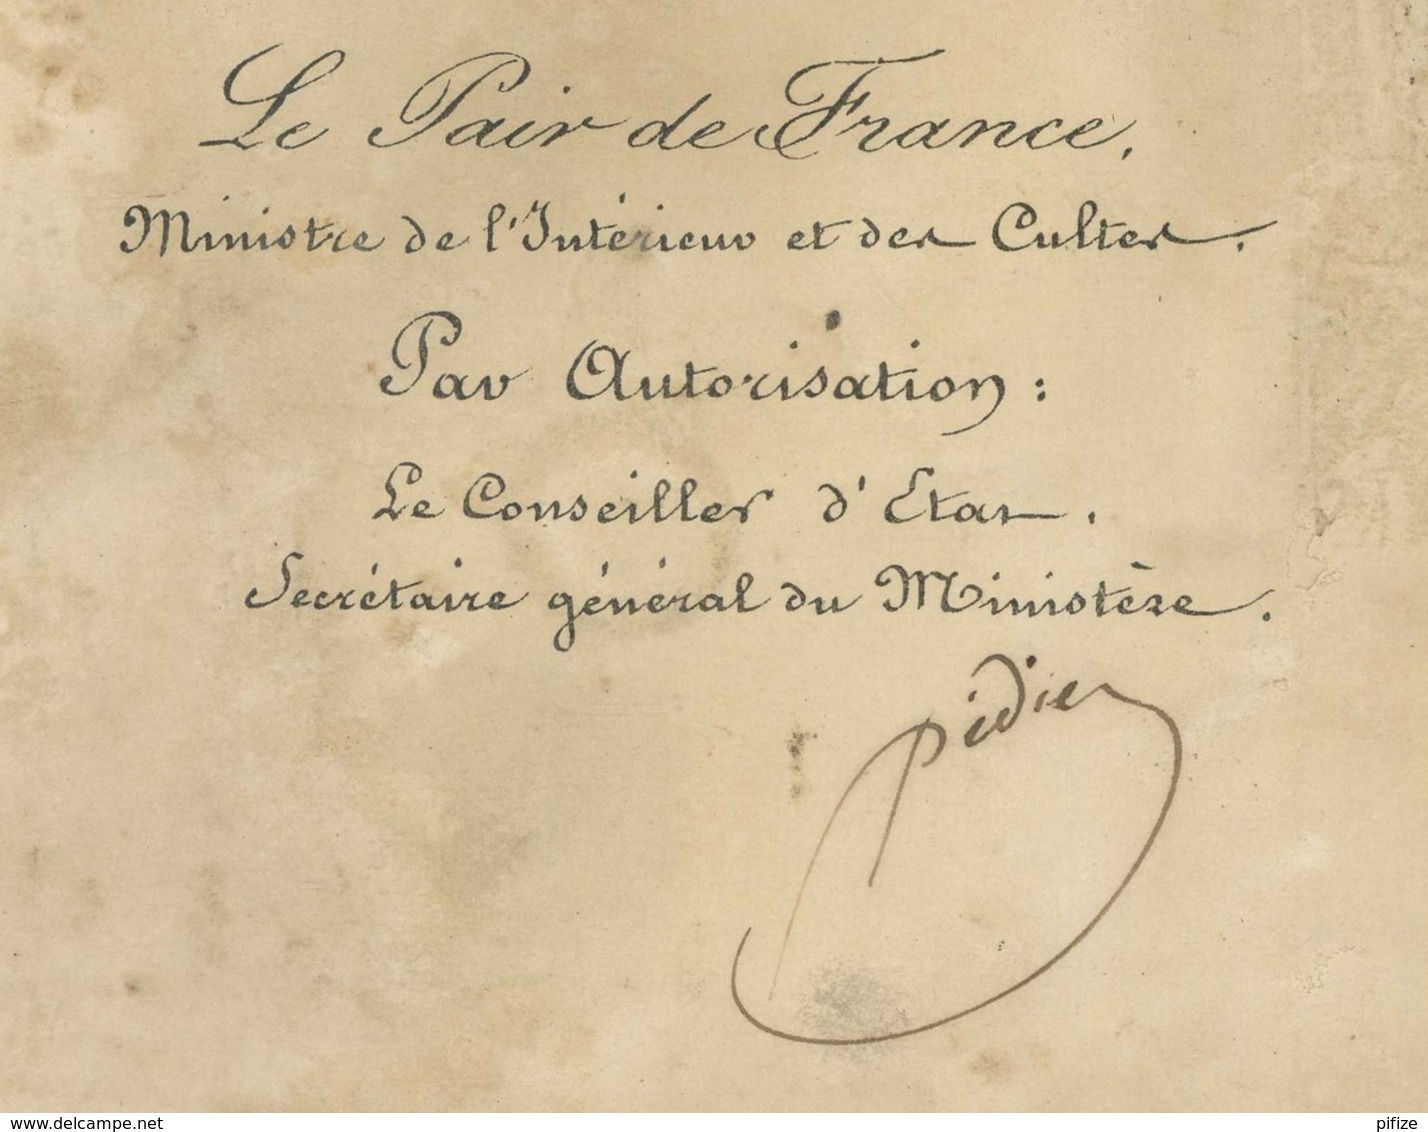 Le Pair de France,
Ministre de l'Intérieur et des Cultes.
Par Autorisation :
Le Conseiller d'Etat.
Secrétaire général du Ministère.
Didier
www.delcampe.net
pifize